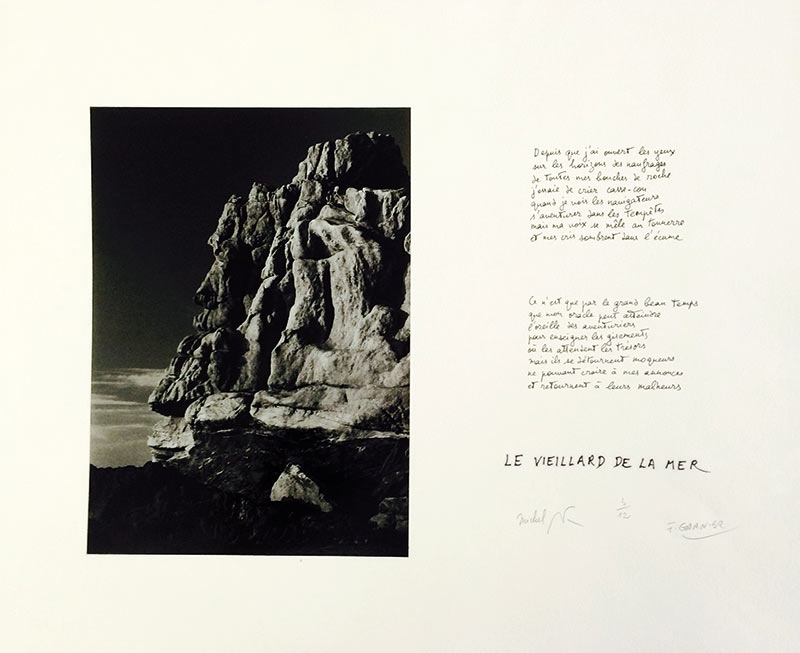 Depuis que j'ai ouvert les yeux
sur les horizons des naufrages
de toutes mes bouches de roche
j'essaie de crier casse-cou
quand je vois les navigateurs
s'aventurer dans les tempêtes
mais ma voix se mêle au tonnerre
et mes cris sombrent dans l'écume
Ce n'est que par le grand beau temps
que mon oracle peut atteindre
l'oreille des aventuriers
pour enseigner les gisements
où les attendent les trésors
mais ils se détournent moqueurs
ne pouvant croire à mes annonces
et retournent à leurs malheurs
LE VIEILLARD DE LA MER
Michel
/12
F. GARNIER